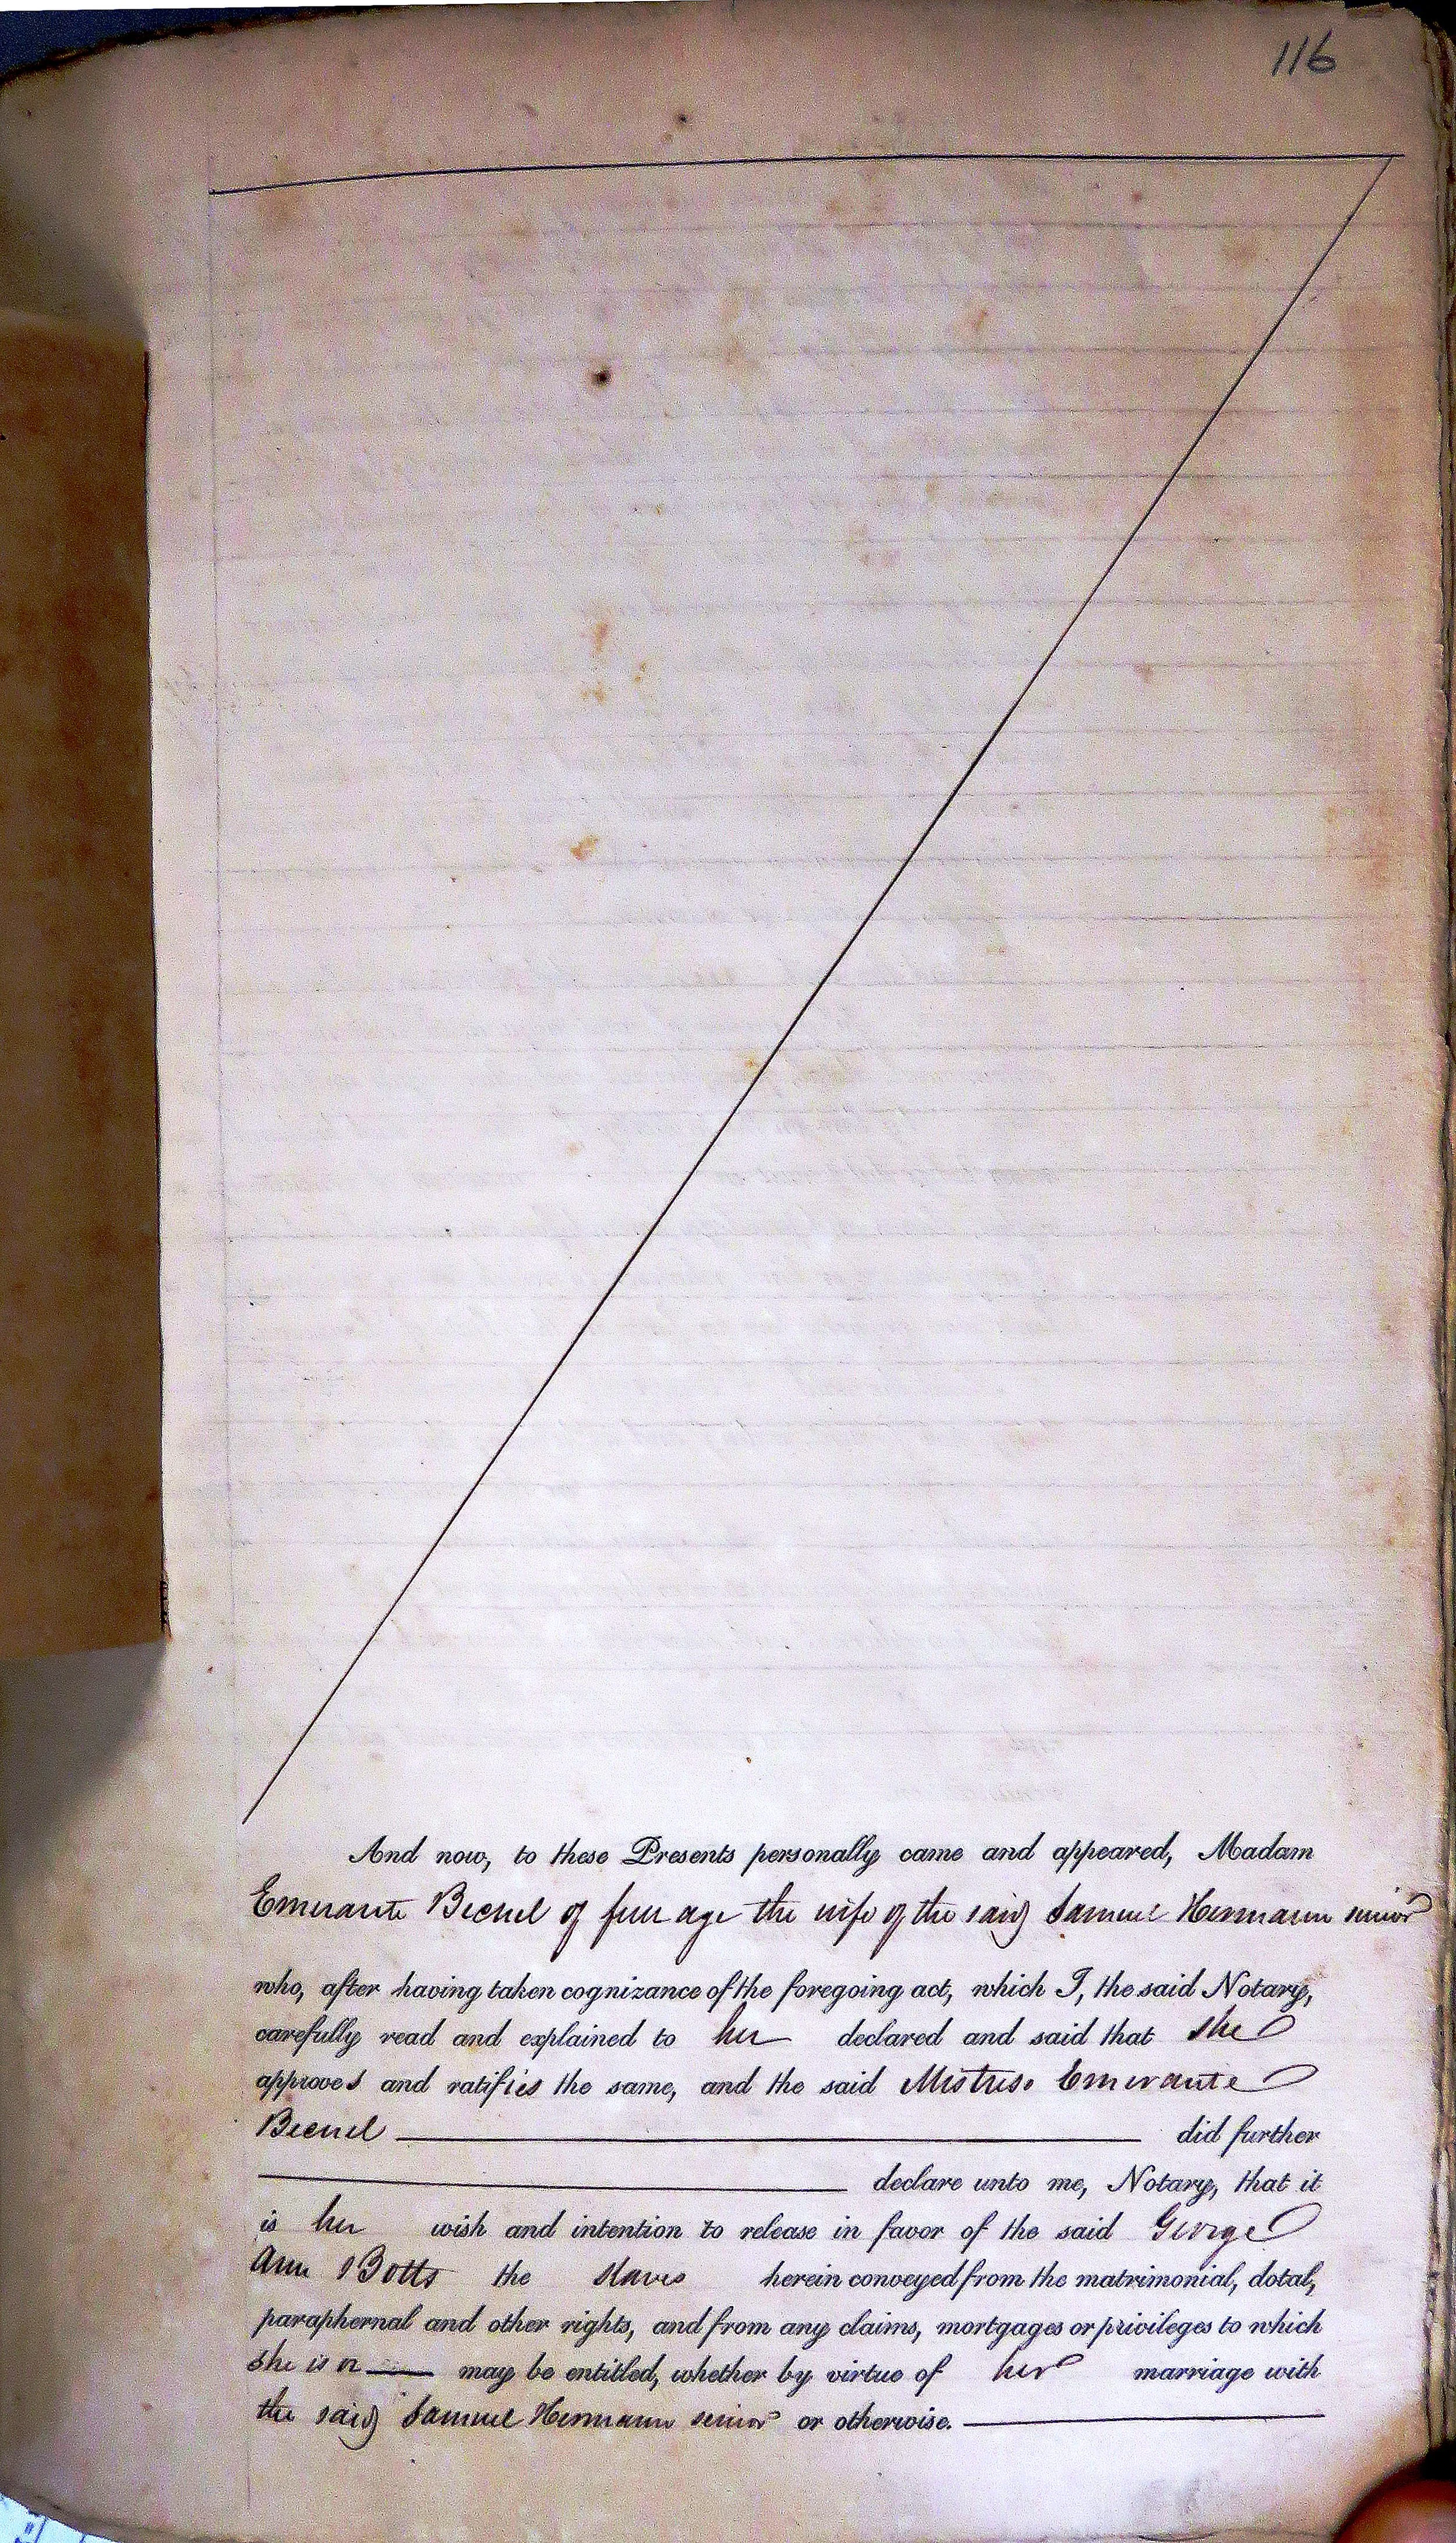 116
And now, to these Presents personally came and appeared, Madam
Emerante Becnel of full age the wife of the said Samuel Hermann senior
who, after having taken cognizance of the foregoing act, which I, the said Notary,
carefully read and explained to her declared and said that she
approves and ratifies the same, and the said Mistress Emerante
Becnel did further
declare unto me, Notary, that it
is her wish and intention to release in favor of the said George
Ann Botts the slaves herein conveyed from the matrimonial, dotal,
paraphernal and other rights, and from any claims, mortgages or privileges to which
she is or may be entitled, whether by virtue of her marriage with
the said Samuel Hermann senior or otherwise.